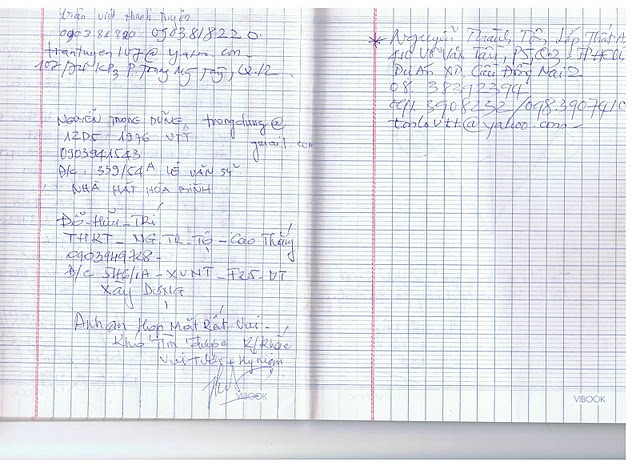 trần viết thanh tuyền
0903 81 820 0903818220.
trantuyen107@yahoo.com
107/D5 KP3 P. Trung Mỹ Tây, Q.12
NGUYỄN TRỌNG DŨNG, trongdung@
gmail com
12D5 1976 VTT
0903941543
Đ/c. 339/54A LÊ VĂN SỸ
NHÀ HÁT HÒA BÌNH
Đỗ Hữu Trí
THKT - NG. TR. Tộ - Cao Thắng
0903949728 -
Đ/C 546/1A - XVNT - F25 - BT
XÂY DỰNG
Anh an Họp Mặt Rất Vui -
Khó Tìm Được K/Khác
Vui Tươi + Kỷ Niệm
VIBOOK
* Nguyễn Thành Tô, Lớp
410 Võ Văn Tần, P5, Q3, TPHCM
Dự Án XD, Cầu Đồng Nai 2
08. 38292394
0913908232 /098.3907410
tonlovtt@yahoo.com -
VIBOOK